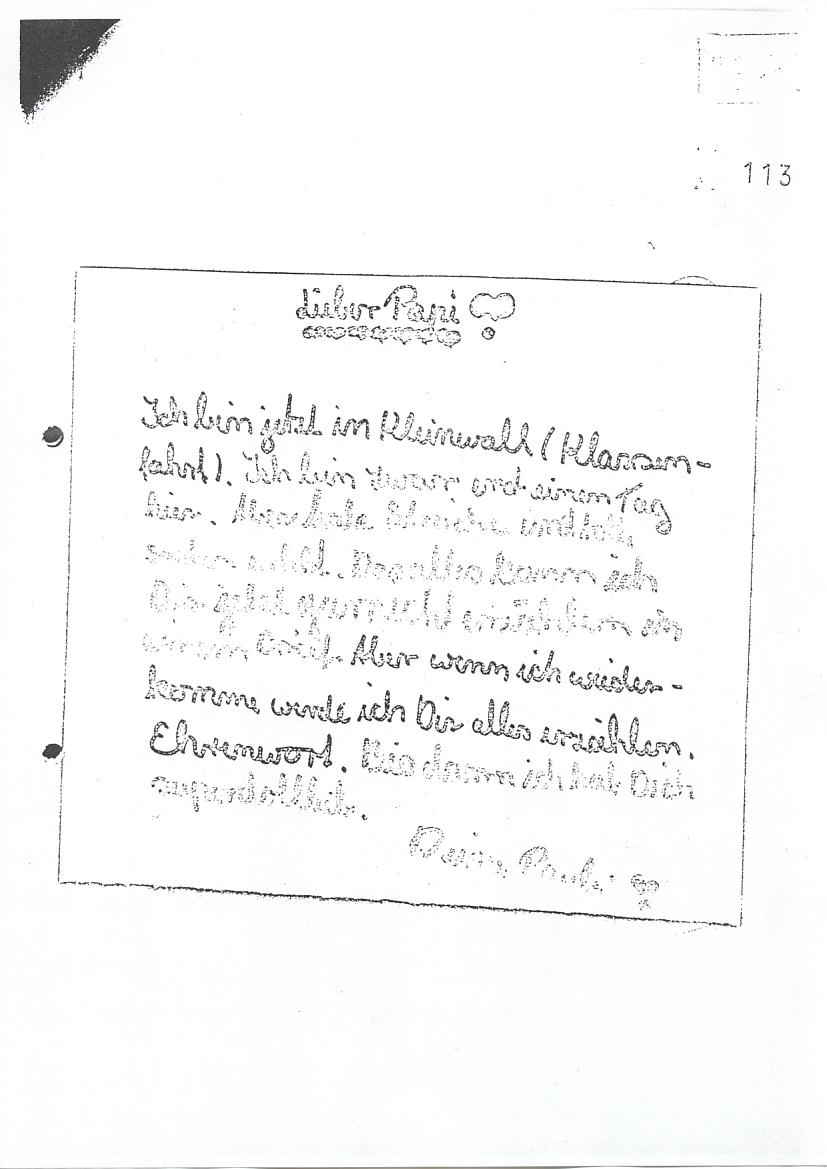 113
Lieber Papi
Ich bin jetzt in Kleinwall (Klassen-
fahrt). Ich bin zwar erst einen Tag
hier. Aber habe und toll
erlebt. Das alles kann ich
Dir jetzt gar nicht erzählen in
einem Brief. Aber wenn ich wieder-
komme werde ich Dir alles erzählen.
Ehrenwort. Bis dann ich hab Dich
superdolllieb.
Deine